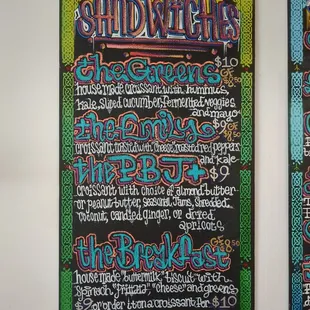 SANDWICHES
the Greens $10
GF $8.50
housemade croissant with hummus,
kale, sliced cucumber, fermented veggies
and mayo
the Emily $9
GF $8
croissant toasted with cheese, roasted red peppers
and kale
the PBJ+ $9
croissant with choice of almond butter
or peanut butter, seasonal jams, shredded
coconut, candied ginger, or dried
apricots
the Breakfast
GF $8.50
house made "buttermilk" biscuit with
spinach, "cheese" and greens
$9 or order it on a croissant for $10